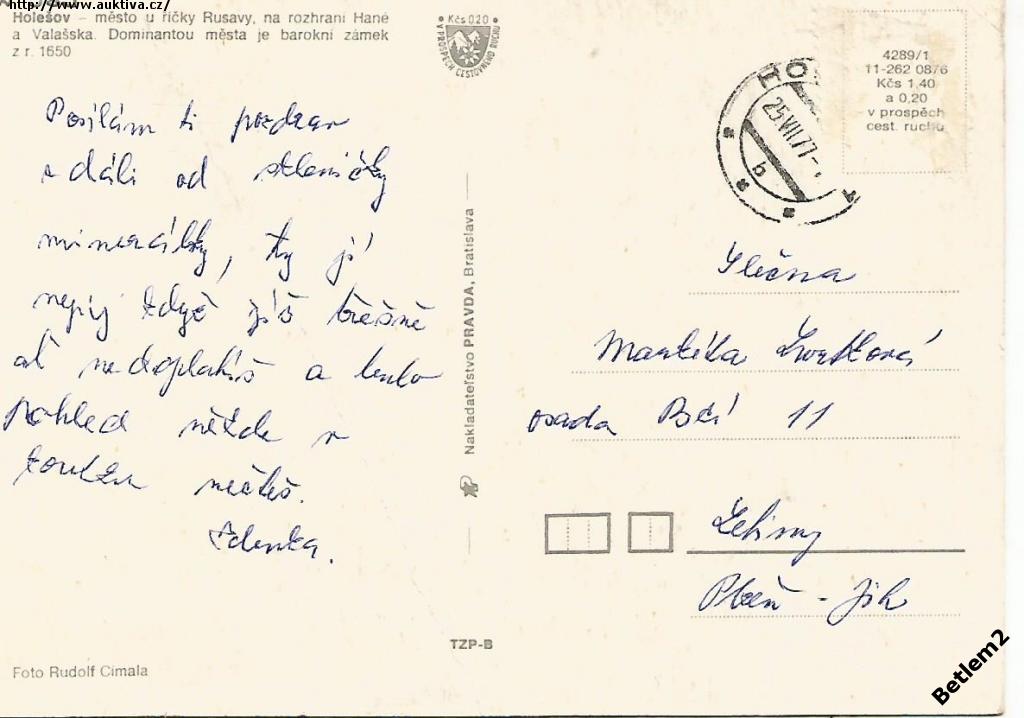 http://www.auktiva.cz/
Holešov – město u říčky Rusavy, na rozhraní Hané
a Valašska. Dominantou města je barokní zámek
z r. 1650
Kčs 0.20
V PROSPĚCH CESTOVNÉHO RUCHU
4289/1
11-262 0876
Kčs 1,40
a 0,20
v prospěch
cest. ruchu
HO
25.VII.77
b
Posílám ti pozdrav
z dáli od skleničky
minerálky, ty jí
nepij když jíš třešně
ať nedoplatíš a tento
pohled někde v
koutku nečteš.
Zdenka.
Nakladateľstvo PRAVDA, Bratislava
Slečna
Markéta
osada 11
Plzeň - Jih
TZP-B
Foto Rudolf Cimala
Betlem2